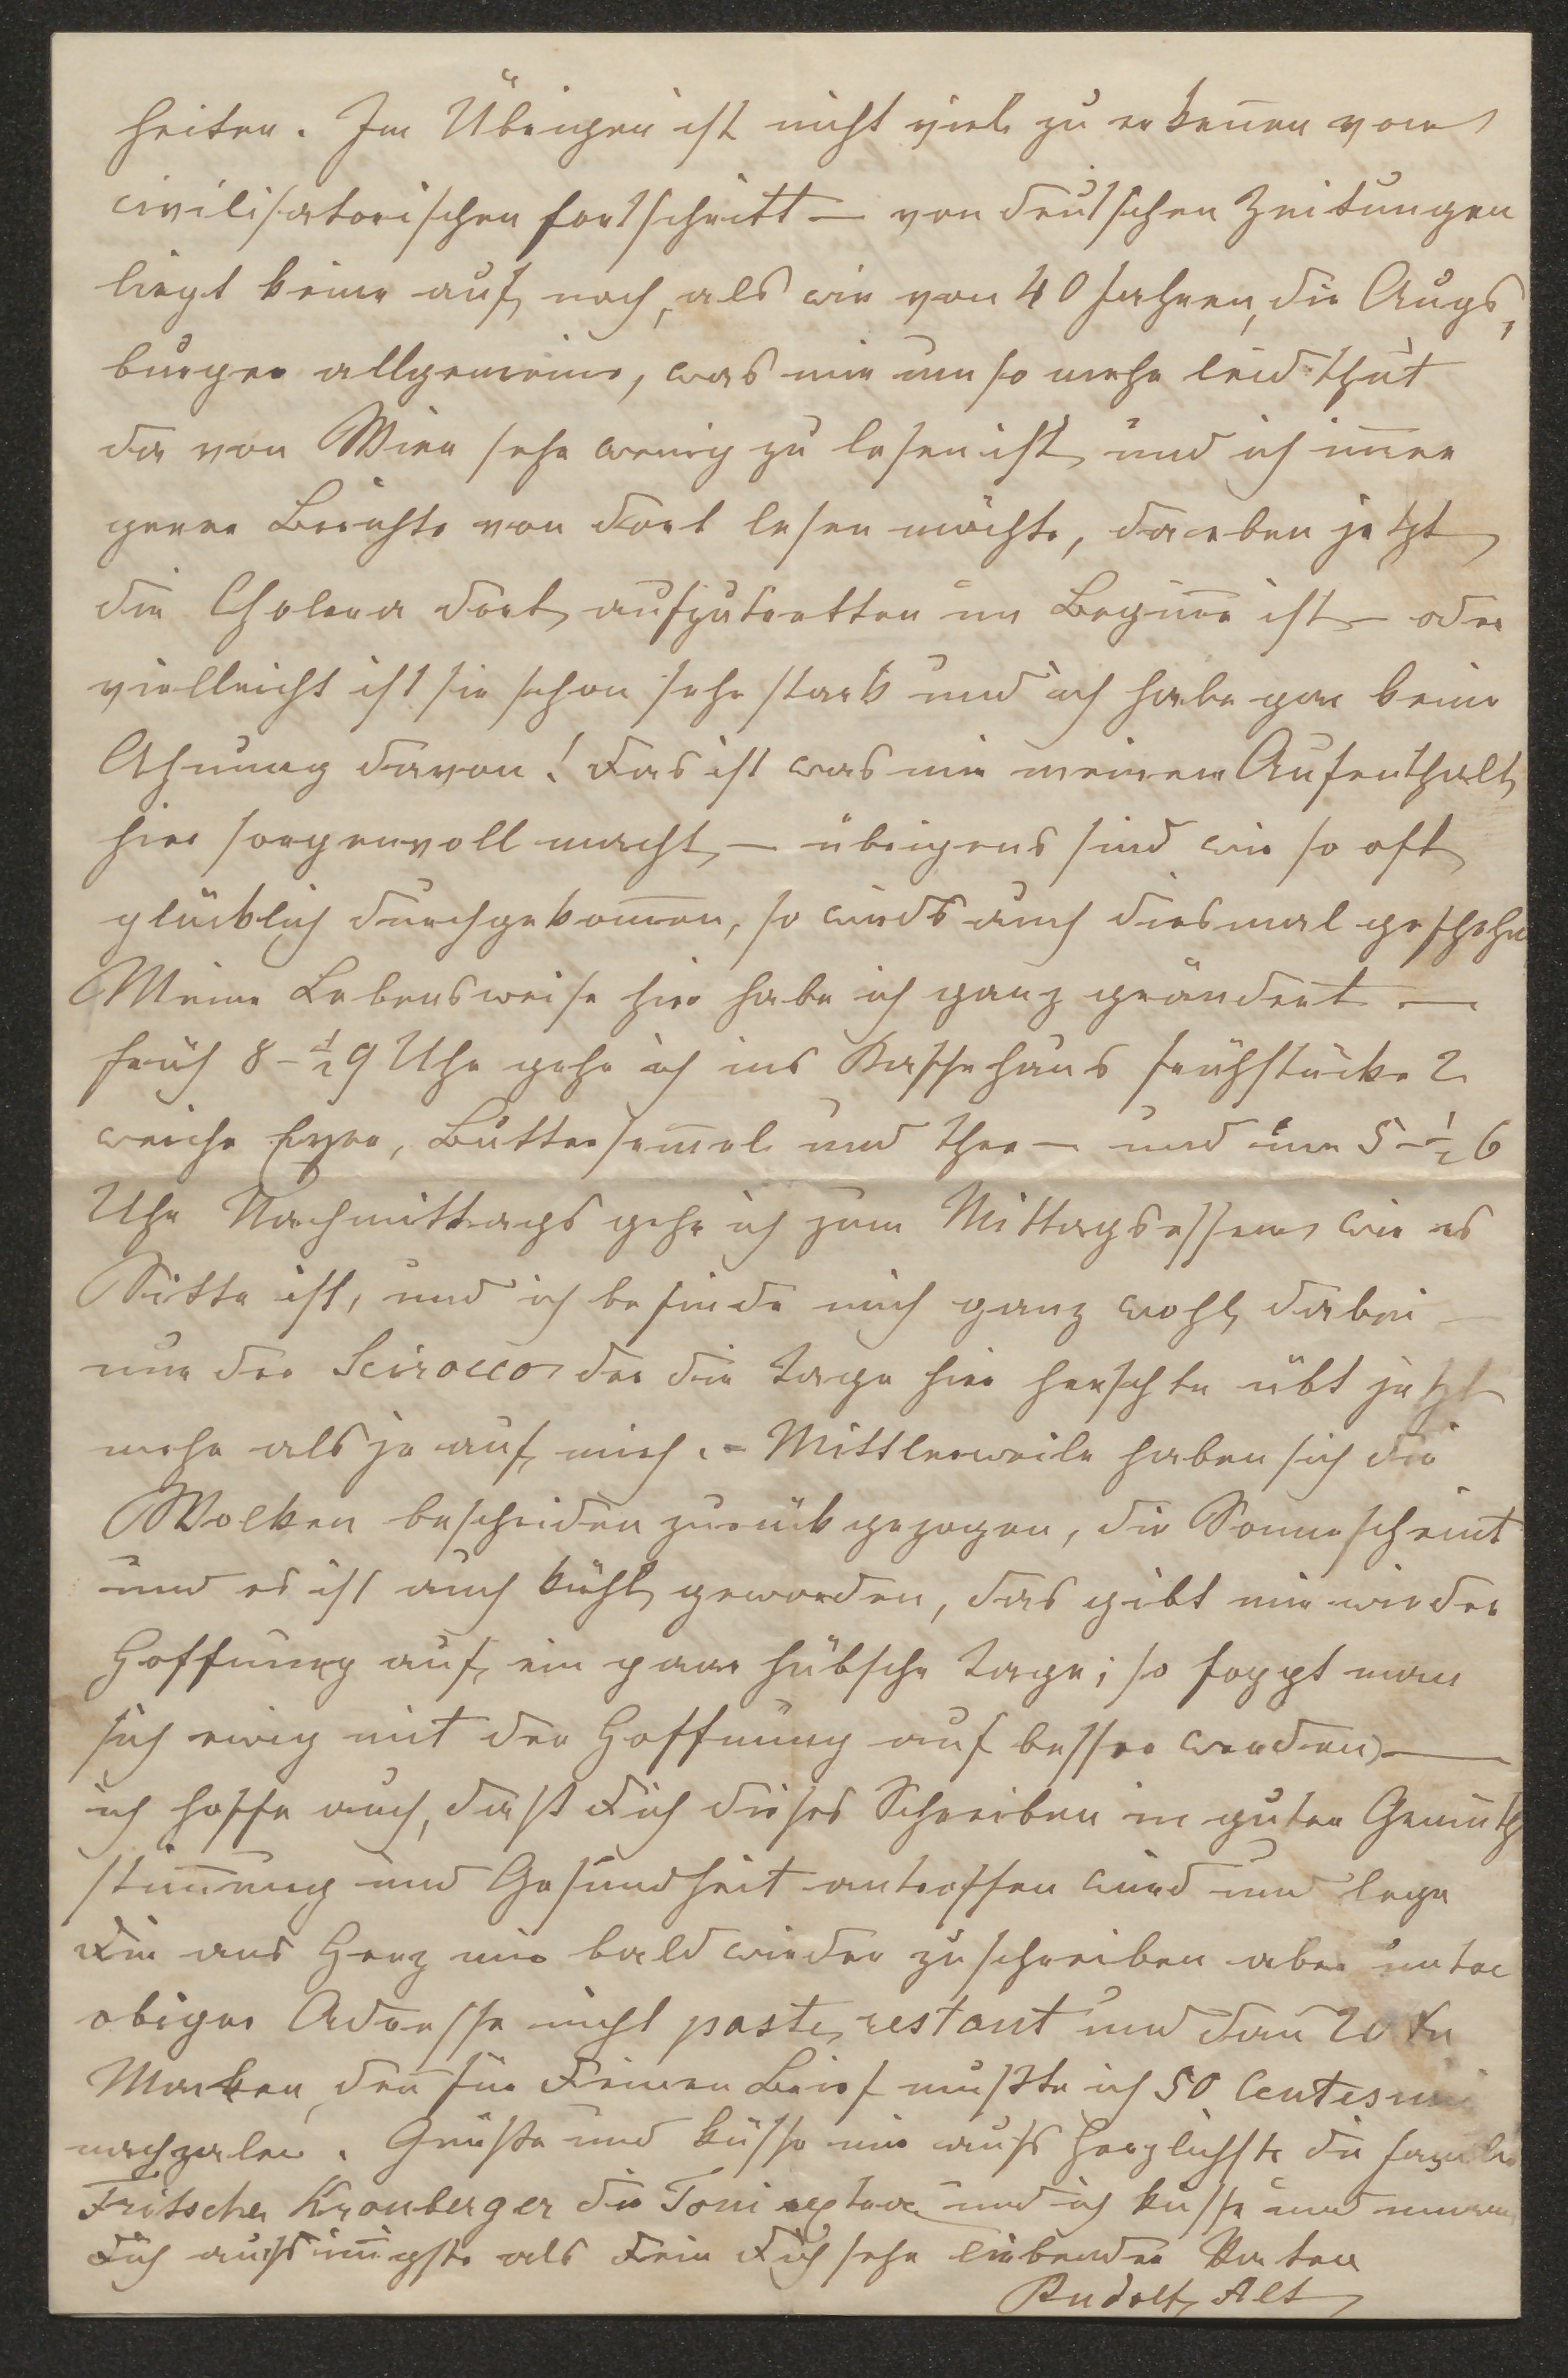 heiten. Im Übrigen ist nicht viel zu erkennen vom
civilisatorischen Fortschritt — von deutschen Zeitungen
liegt keine auf, noch, als wie vor 40 Jahren, die Augs,
burger allgemeine, was mir um so mehr leid thut
da von Wien sehr wenig zu lesen ist, und ich immer
gerne Berichte von dort lesen möchte, da eben jetzt
die Cholera dort aufzutretten im Beginne ist — oder
vielleicht ist sie schon sehr stark und ich habe gar keine
Ahnung davon! Das ist was mir meinen Aufenthalt
hier sorgenvoll macht, — übrigens sind wir so oft
glücklich durchgekommen, so wirds auch diesmal geschehn
Meine Lebensweise hier habe ich ganz geändert —
früh 8 – ½ 9 Uhr gehe ich ins Kaffehaus frühstücke 2
weiche Eyer, Buttersemmel und Thee — und um 5 – ½ 6
Uhr Nachmittags gehe ich zum Mittagsessen, wie es
Sitte ist, und ich befinde mich ganz wohl dabei —
nur der Scirocco der die Tage hier herschte übt jetzt
mehr als je auf mich. – Mittlerweile haben sich die
Wolken bescheiden zurückgezogen, die Sonne scheint
und es ist auch kühl geworden, das gibt mir wieder
Hoffnung auf ein paar hübsche Tage; so foppt man
sich ewig mit der Hoffnung auf besser werden —
ich hoffe auch, daß Dich dieses Schreiben in guter Gemüth
stimmung und Gesundheit antreffen wird und lege
Dir ans Herz mir bald wieder zu schreiben aber unter
obiger Adresse nicht poste restant und dann 20
Marken, denn für Deinen Brief mußte ich 50 Centesimi
nachzalen. Grüße und küsse mir aufs herzlichste die Familie
Fritsche, Kronberger die Toni und ich küsse und
Dich aufs innigste als Dein Dich sehr liebender Vater
Rudolf Alt